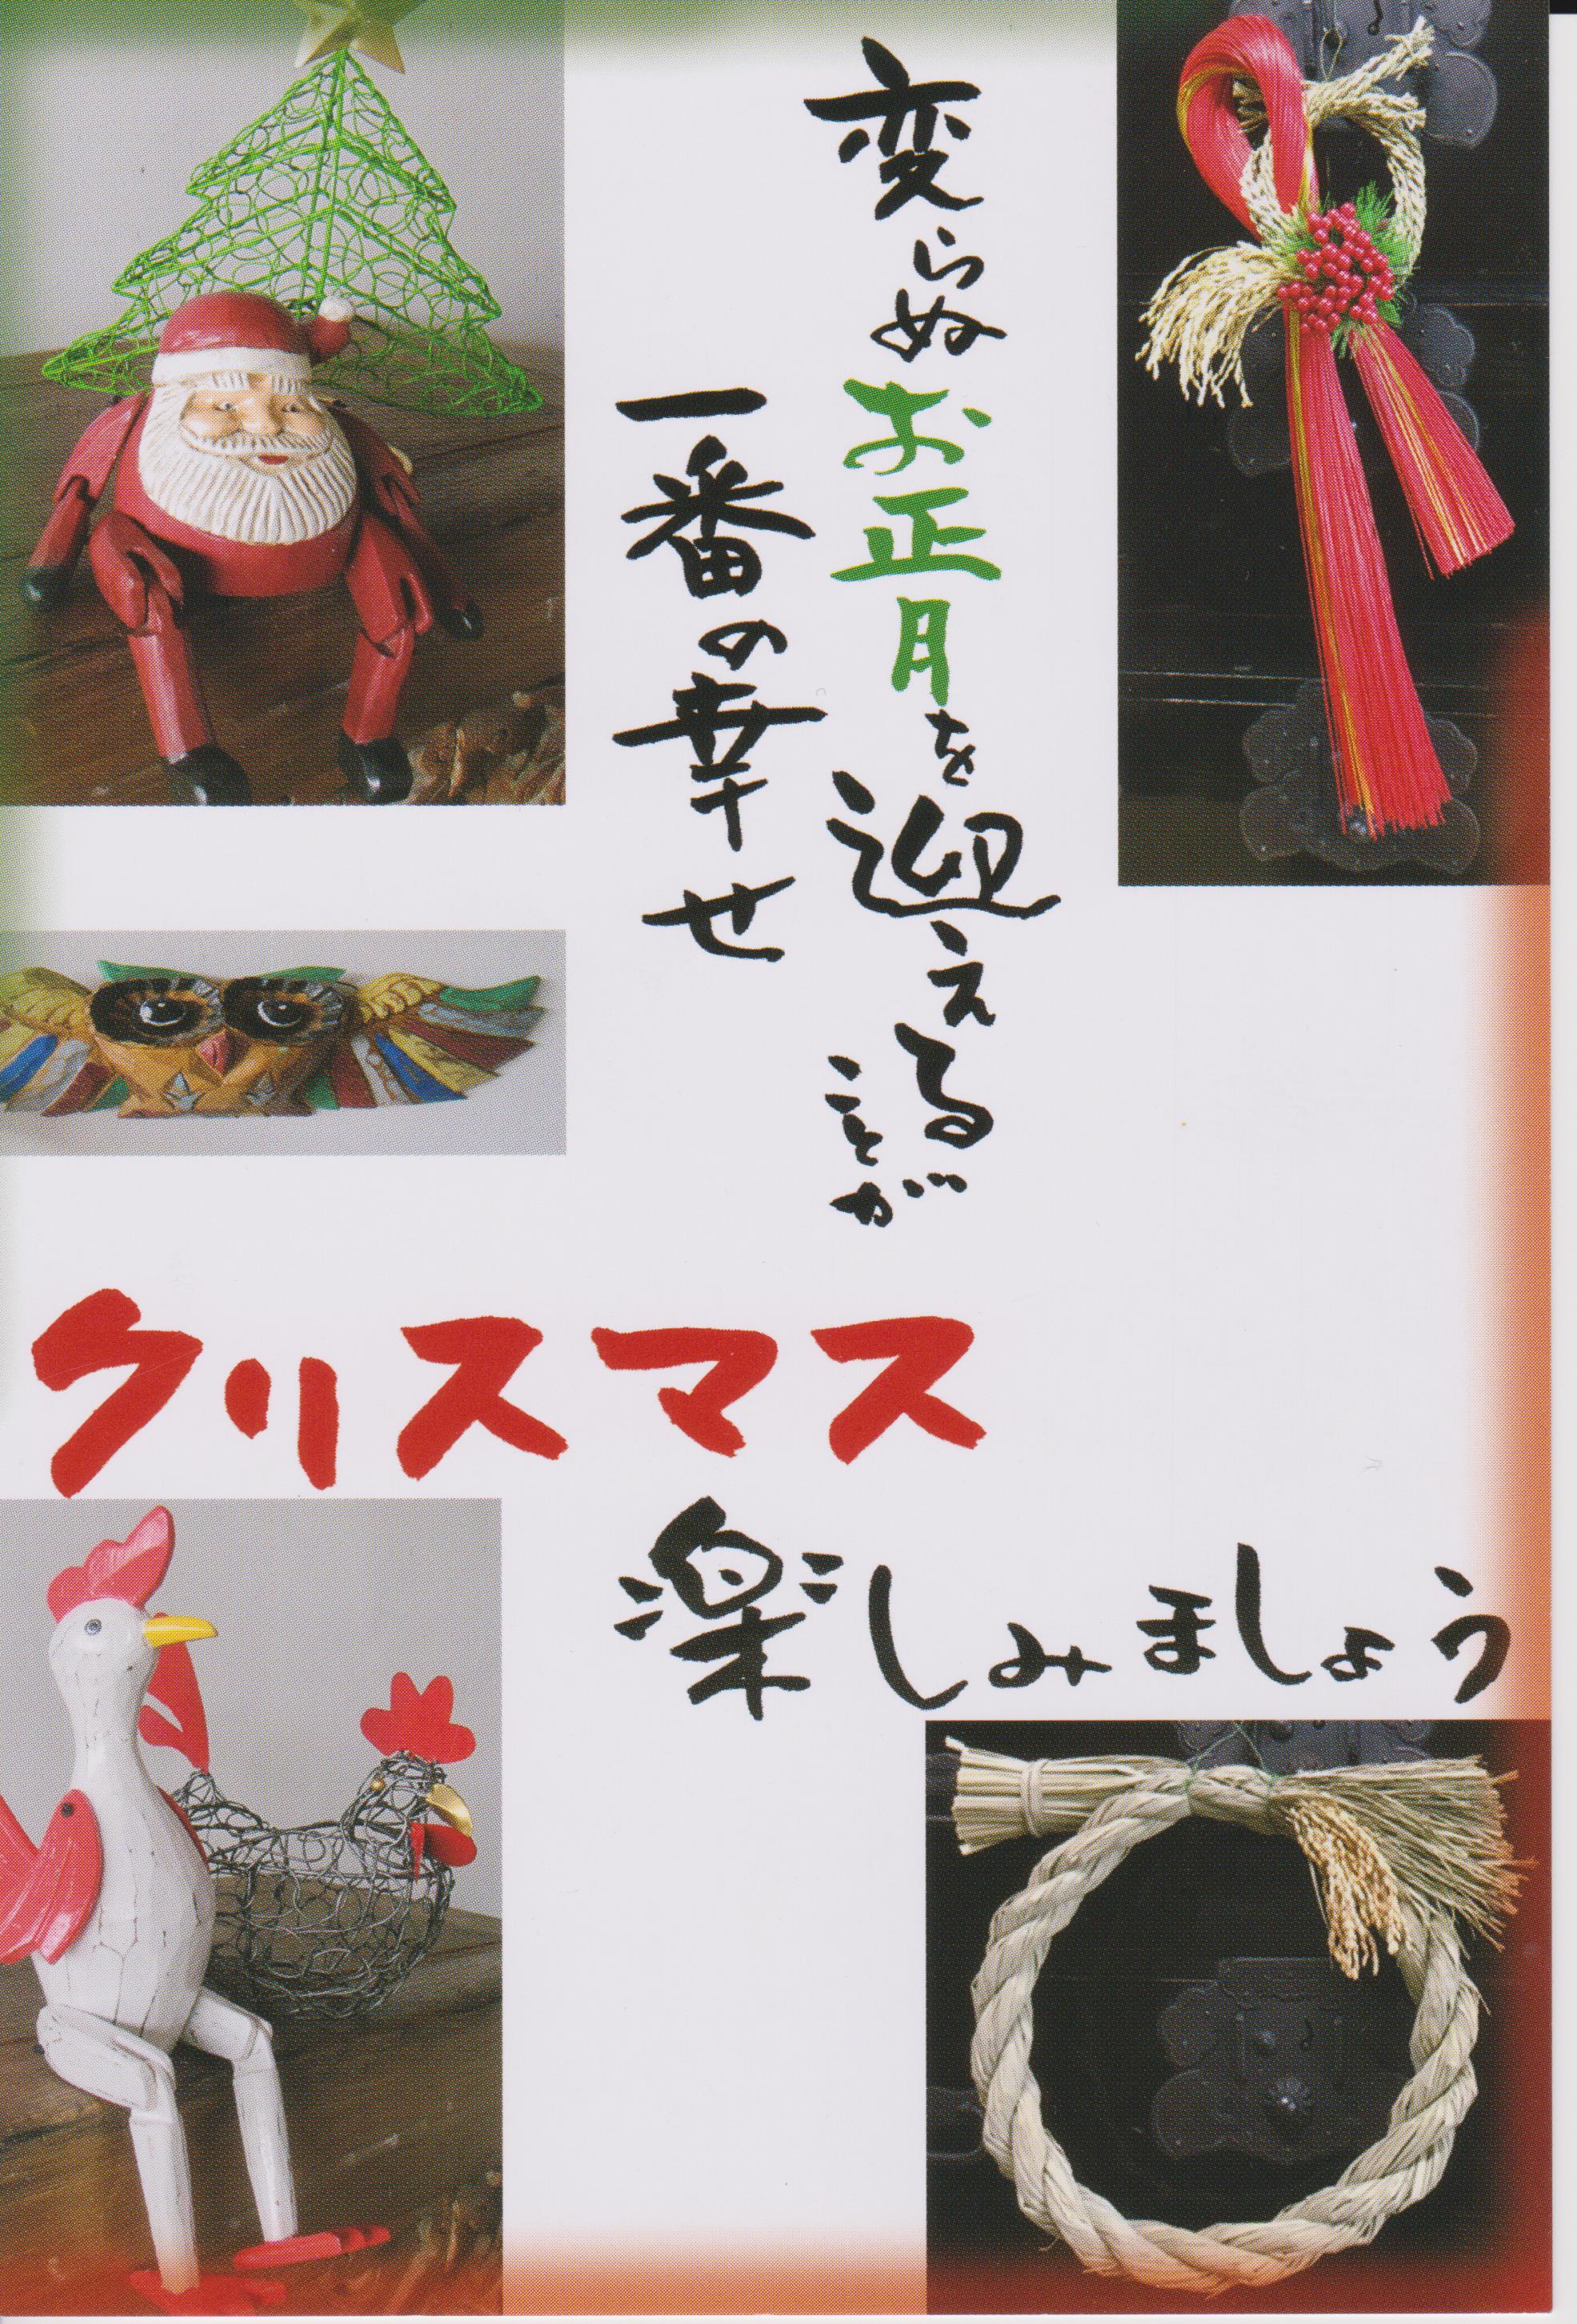 変らぬお正月を迎えることが
一番の幸せ
クリスマス
楽しみましょう